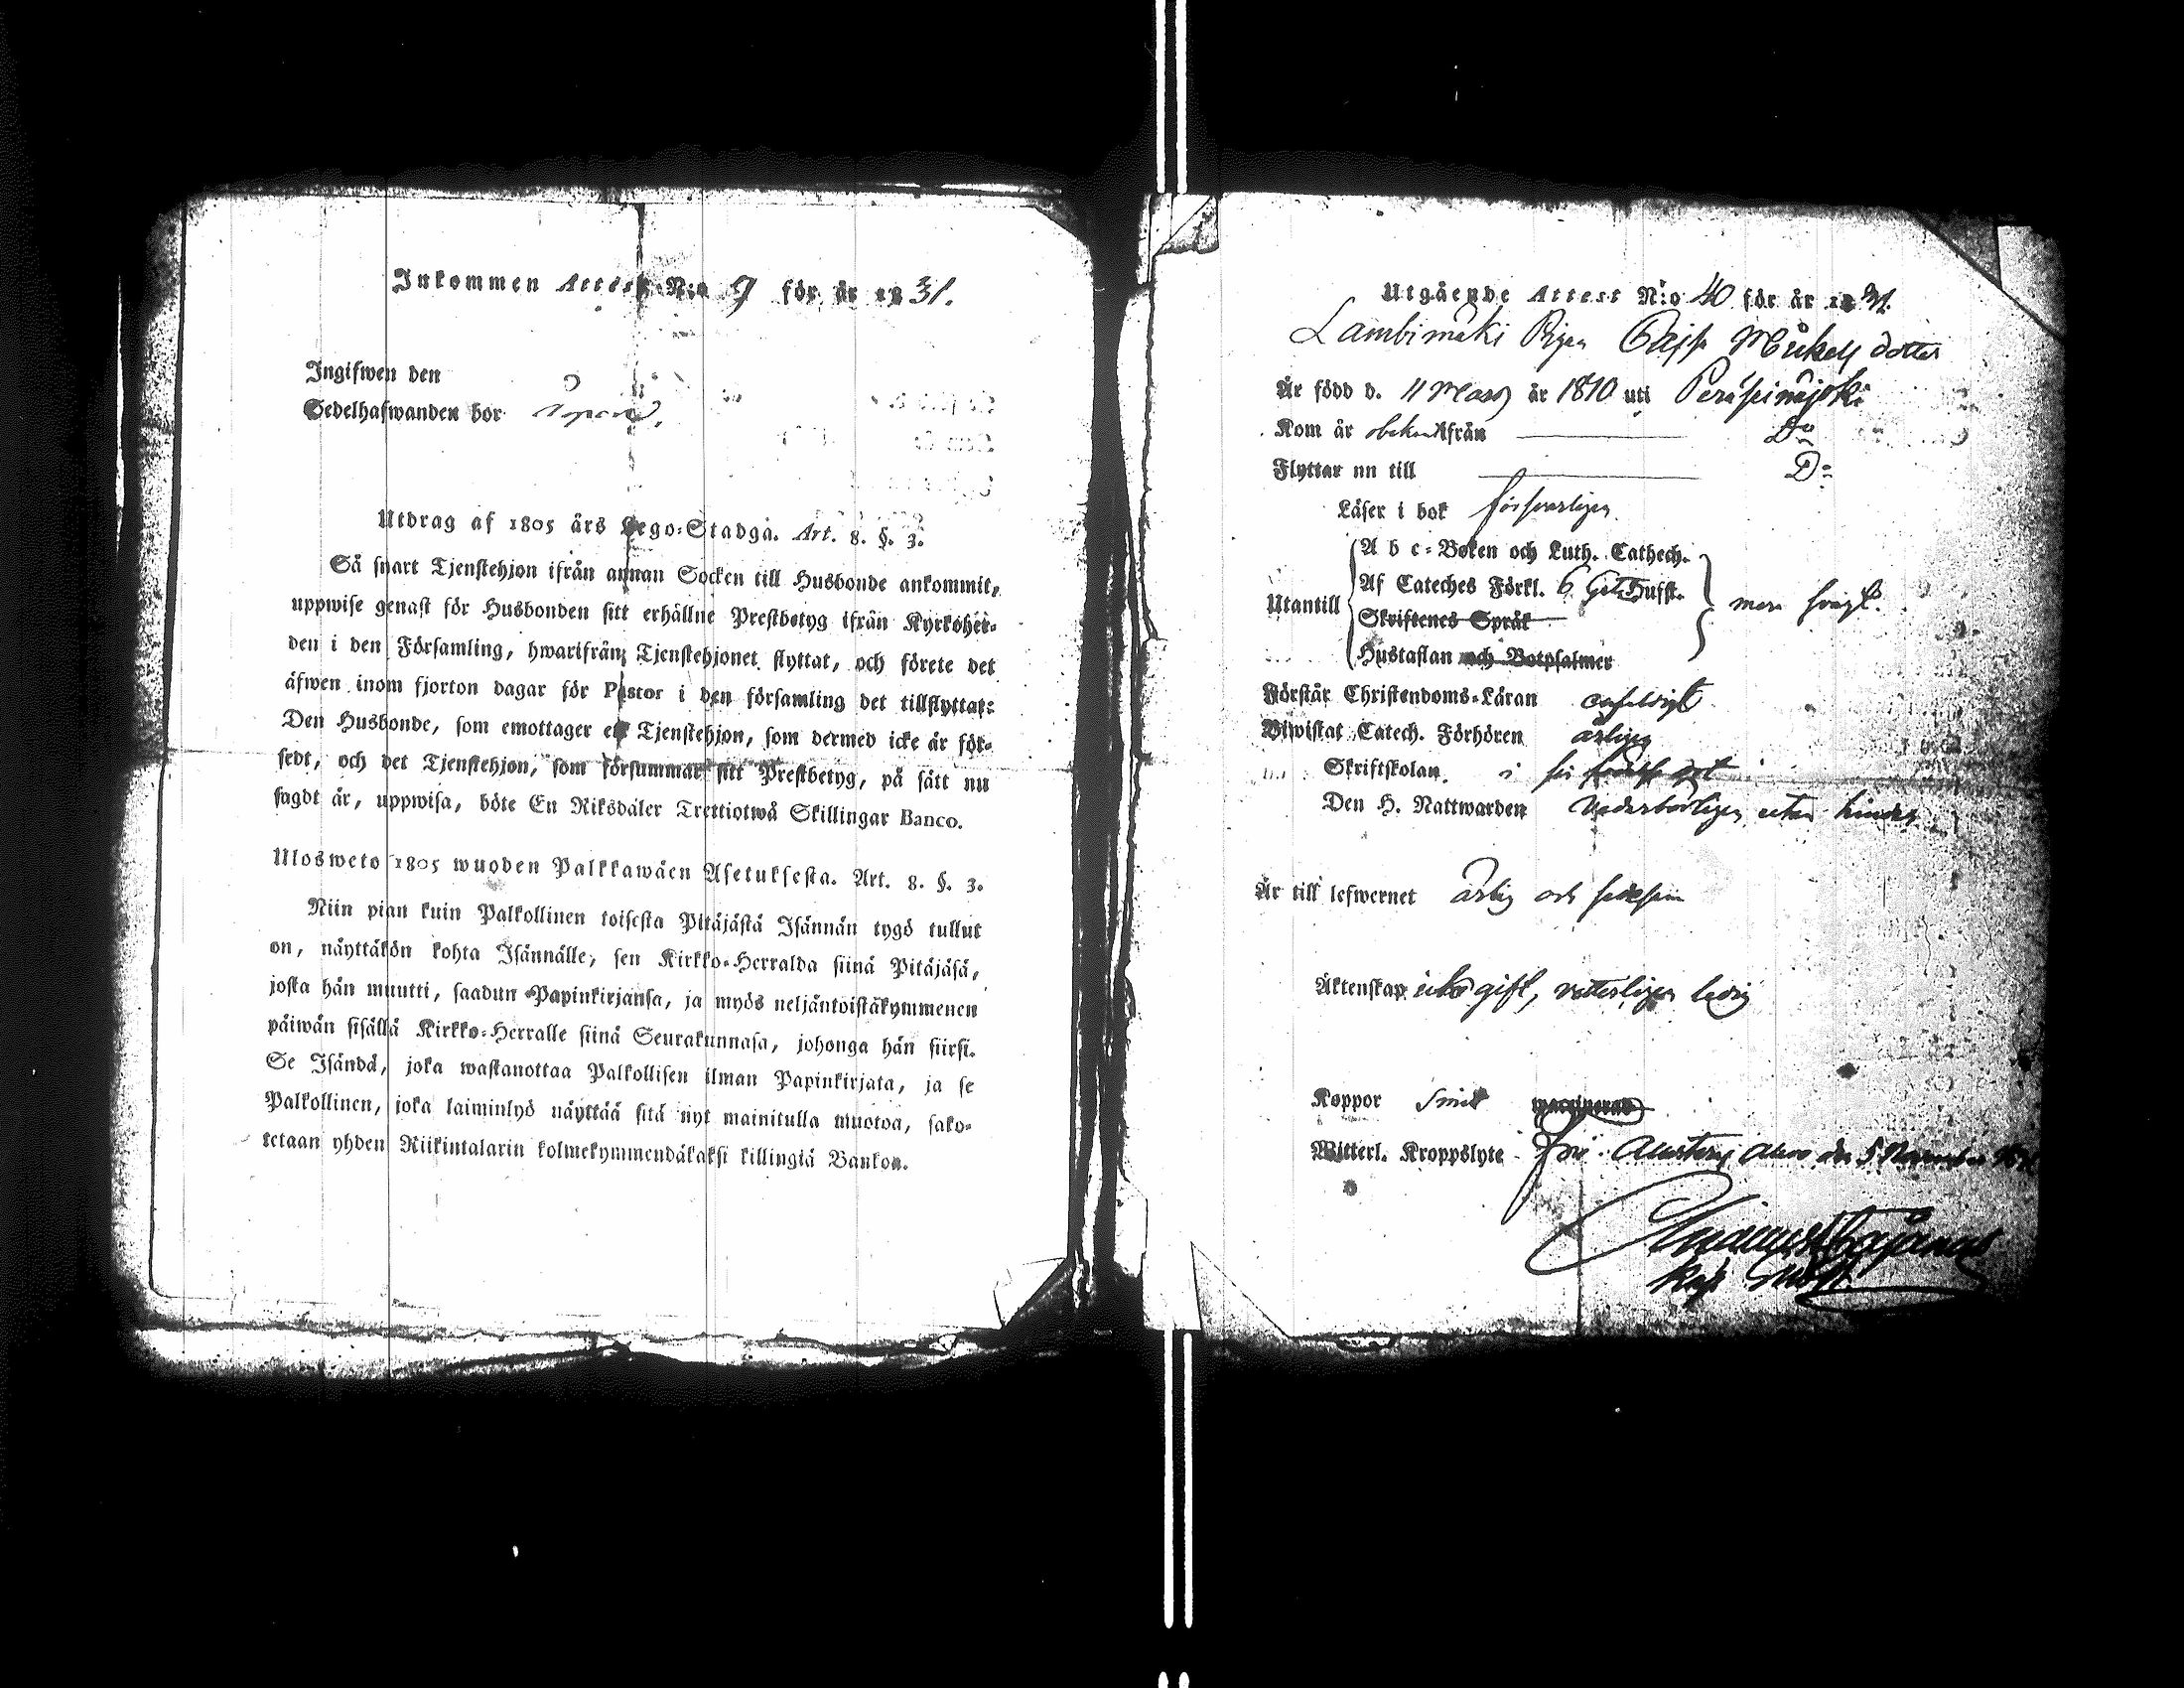 Inkommen Attest N:o 9 för år 1831.
Ingifwen den
Sedelhafwanden bor
Utdrag af 1805 års Lego-Stadga. Art. 8. §. 3.
Så snart Tjenstehjon ifrån annan Socken till Husbonde ankommit,
uppwise genast för Husbonden sitt erhållne Prestbetyg ifrån Kyrkoher-
den i den Församling, hwarifrån Tjenstehjonet flyttat, och förete det
äfwen inom fjorton dagar för Pastor i den församling det tillflyttat:
Den Husbonde, som emottager ett Tjenstehjon, som dermed icke är för-
sedt, och det Tjenstehjon, som försummar sitt Prestbetyg, på sätt nu
sagdt är, uppwisa, böte En Riksdaler Trettiotwå Skillingar Banco.
Ulosweto 1805 wuoden Palkkawäen Asetuksesta. Art. 8. §. 3.
Niin pian kuin Palkollinen toisesta Pitäjästä Isännän tygö tullut
on, näyttäkön kohta Isännälle, sen Kirkko-Herralda siinä Pitäjäsä,
josta hän muutti, saadun Papinkirjansa, ja myös neljäntoistäkymmenen
päiwän sisällä Kirkko-Herralle siinä Seurakunnasa, johonga hän siirsi.
Se Isändä, joka wastanottaa Palkollisen ilman Papinkirjata, ja se
Palkollinen, joka laiminlyö näyttää sitä nyt mainitulla muotoa, sako-
tetaan yhden Riikintalarin kolmekymmendäkaksi killingiä Bankon.
Utgående Attest N:o 40 för år 1831.
Lambimäki Pigan Cajsa Mickels dotter
Är född d. 11 Mars år 1810 uti Peräseinäjoki
Kom år obekant ifrån Do
Flyttar nu till Do
Läser i bok försvarligen
Utantill
A b c-Boken och Luth. Cathech.
Af Cateches Förkl. 6 Hufst.
Skriftenes Språk
Hustaflan och Botpsalmer
Förstår Christendoms-Läran enfaldigt
Biwistat Catech. Förhören årligen
Skriftskolan i sin
Den H. Nattwarden vederbörligen, utan hinder
Är till lefwernet ärlig och sedesam
Äktenskap gift, vitterligen ledig
Koppor vaccinerad
Witterl. Kroppslyte fri. den 5 November